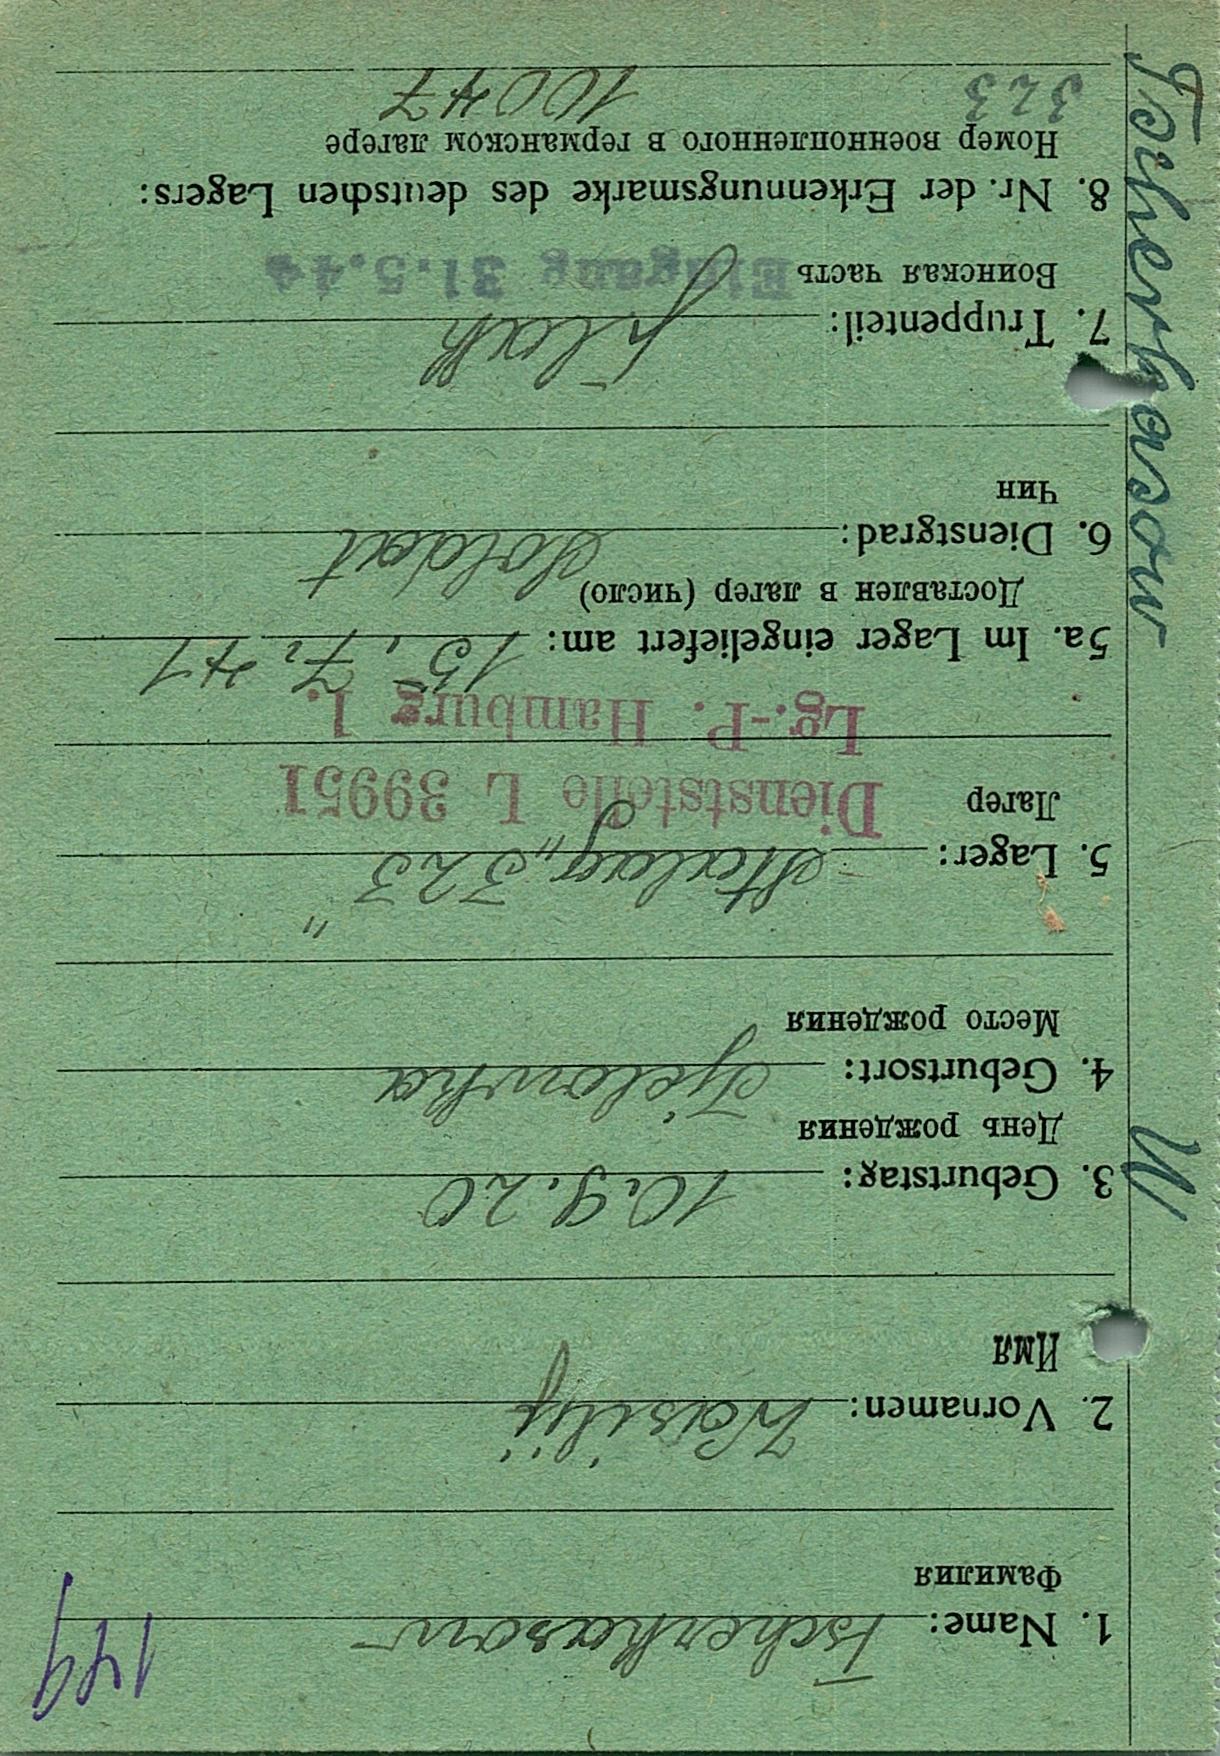 149
1. Name: Tscherkasow
Фамилия
2. Vornamen: Wasilij
Имя
3. Geburtstag: 10.9.20
День рождения
4. Geburtsort:
Место рождения
5. Lager: Stalag „323“
Лагер
Dienststelle L 39951
Lg.-P. Hamburg 1.
5a. Im Lager eingeliefert am: 15.7.41
Доставлен в лагер (число)
6. Dienstgrad: Soldat
Чин
7. Truppenteil: Flak
Воинская часть
Eingang 31.5.44
8. Nr. der Erkennungsmarke des deutschen Lagers:
Номер военнопленного в германском лагере
323 10047
W Tscherkasow